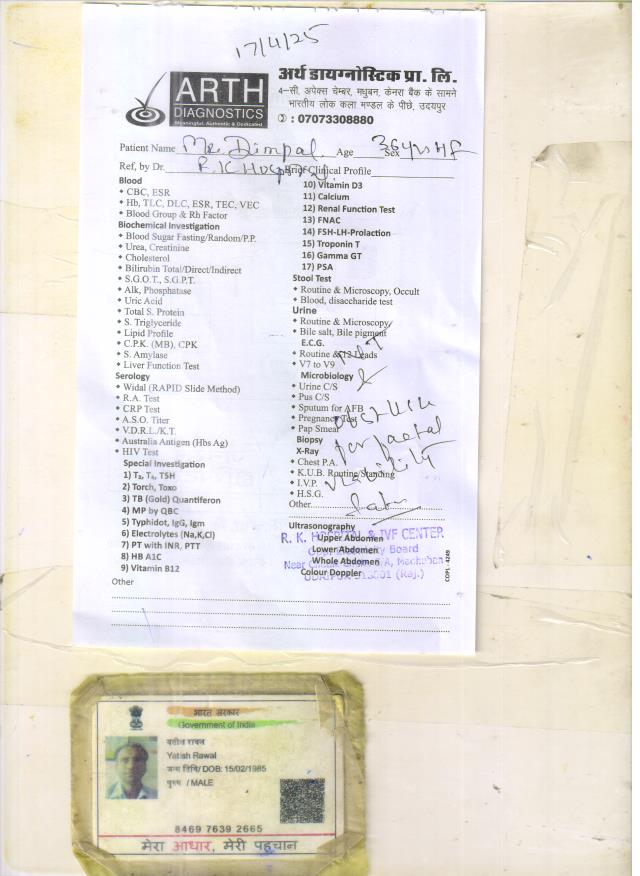 17/4/25
ARTH
DIAGNOSTICS
Meaningful, Authentic & Dedicated
अर्थ डायग्नोस्टिक प्रा. लि.
4–सी, अपेक्स चेम्बर, मधुबन, केनरा बैंक के सामने
भारतीय लोक कला मण्डल के पीछे, उदयपुर
: 07073308880
Patient Name Dimpal Age 36 yrs Sex F
Ref, by Dr. R.K Hospital Brief Clinical Profile
Blood
CBC, ESR
Hb, TLC, DLC, ESR, TEC, VEC
Blood Group & Rh Factor
Biochemical Investigation
Blood Sugar Fasting/Random/P.P.
Urea, Creatinine
Cholesterol
Bilirubin Total/Direct/Indirect
S.G.O.T., S.G.P.T.
Alk, Phosphatase
Uric Acid
Total S. Protein
S. Triglyceride
Lipid Profile
C.P.K. (MB), CPK
S. Amylase
Liver Function Test
Serology
Widal (RAPID Slide Method)
R.A. Test
CRP Test
A.S.O. Titer
V.D.R.L./K.T.
Australia Antigen (Hbs Ag)
HIV Test
Special Investigation
1) T₃, T₄, TSH
2) Torch, Toxo
3) TB (Gold) Quantiferon
4) MP by QBC
5) Typhidot, IgG, Igm
6) Electrolytes (Na,K,Cl)
7) PT with INR, PTT
8) HB A1C
9) Vitamin B12
10) Vitamin D3
11) Calcium
12) Renal Function Test
13) FNAC
14) FSH-LH-Prolaction
15) Troponin T
16) Gamma GT
17) PSA
Stool Test
Routine & Microscopy, Occult
Blood, disaccharide test
Urine
Routine & Microscopy
Bile salt, Bile pigment
E.C.G.
Routine & 12 Leads
V7 to V9
Microbiology
Urine C/S
Pus C/S
Sputum for AFB
Pregnancy Test
Pap Smear
Biopsy
X-Ray
Chest P.A.
K.U.B. Routine/Standing
I.V.P.
H.S.G.
Other
for faetal
viability
Ultrasonography
Upper Abdomen
Lower Abdomen
Whole Abdomen
Colour Doppler
R. K. HOSPITAL & IVF CENTER
Board
Near Madhuban
UDAIPUR-313001 (Raj.)
COPL - 4249
Other
भारत सरकार
Government of India
यतीश रावल
Yatish Rawal
जन्म तिथि/ DOB: 15/02/1985
पुरुष / MALE
8469 7639 2665
मेरा आधार, मेरी पहचान